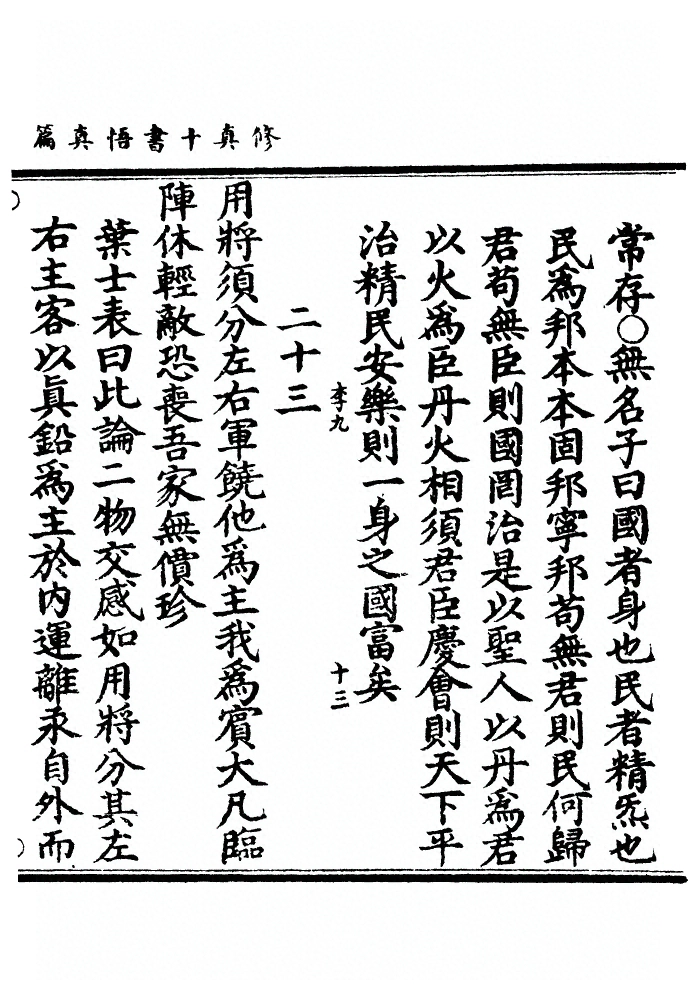 修真十書悟真篇
常存○無名子曰國者身也民者精炁也
民為邦本本固邦寧邦苟無君則民何歸
君苟無臣則國罔治是以聖人以丹為君
以火為臣丹火相須君臣慶會則天下平
治精民安樂則一身之國富矣
李九
十三
二十三
用將須分左右軍饒他為主我為賓大凡臨
陣休輕敵恐喪吾家無價珍
葉士表曰此論二物交感如用將分其左
右主客以真鉛為主於內運離汞自外而